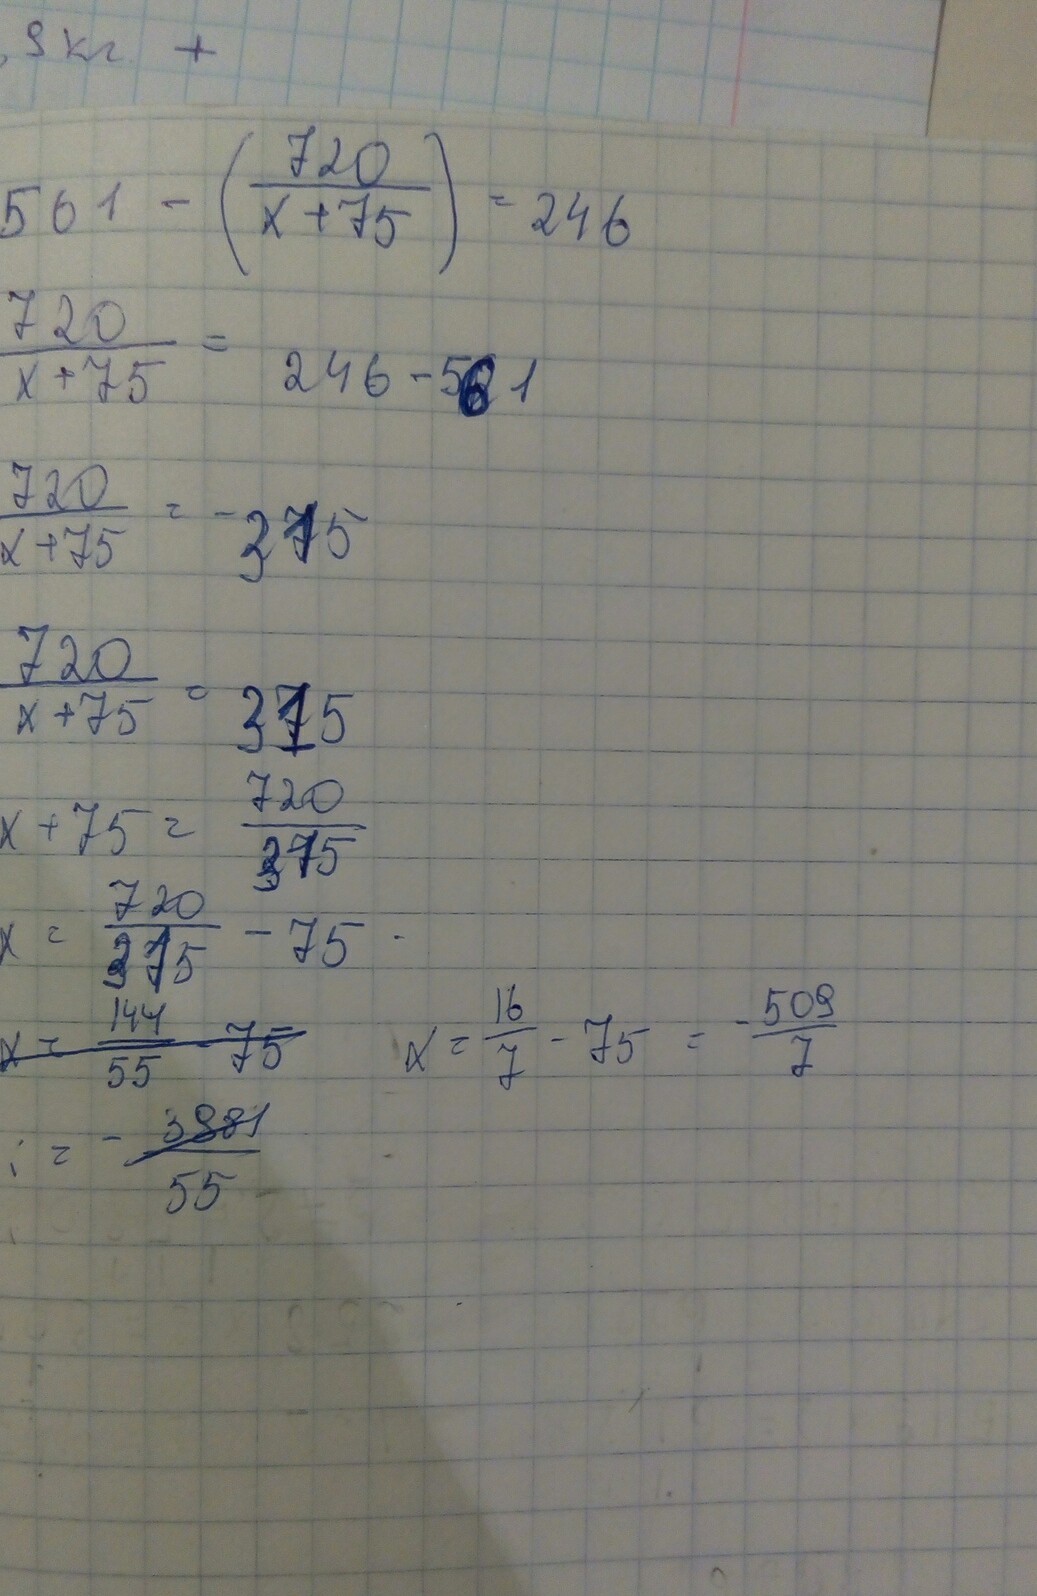 , 9 кг. +
561 - (720/(x+75)) = 246
720/(x+75) = 246 - 561
720/(x+75) = -315
720/(x+75) = 315
x + 75 = 720/315
x = 720/315 - 75
x = 144/55 - 75 x = 16/7 - 75 = -509/7
= - 3981/55